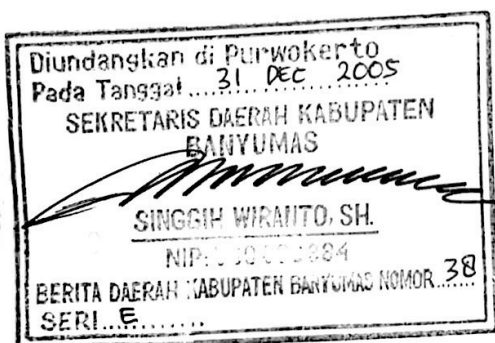 Diundangkan di Purwokerto
Pada Tanggal....31 DEC 2005
SEKRETARIS DAERAH KABUPATEN
BANYUMAS
SINGGIH WIRANTO, SH.
NIP.
BERITA DAERAH KABUPATEN BANYUMAS NOMOR...38
SERI...E.........